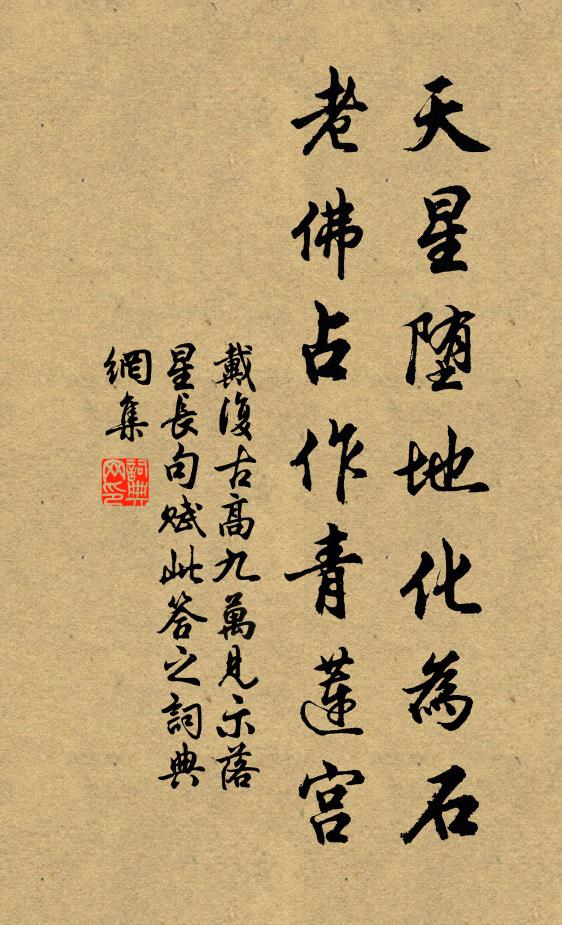 天星堕地化為石
老佛占作青蓮宮
戴復古高九萬見示落
星長句賦此答之詞典
網集
詞典
网印